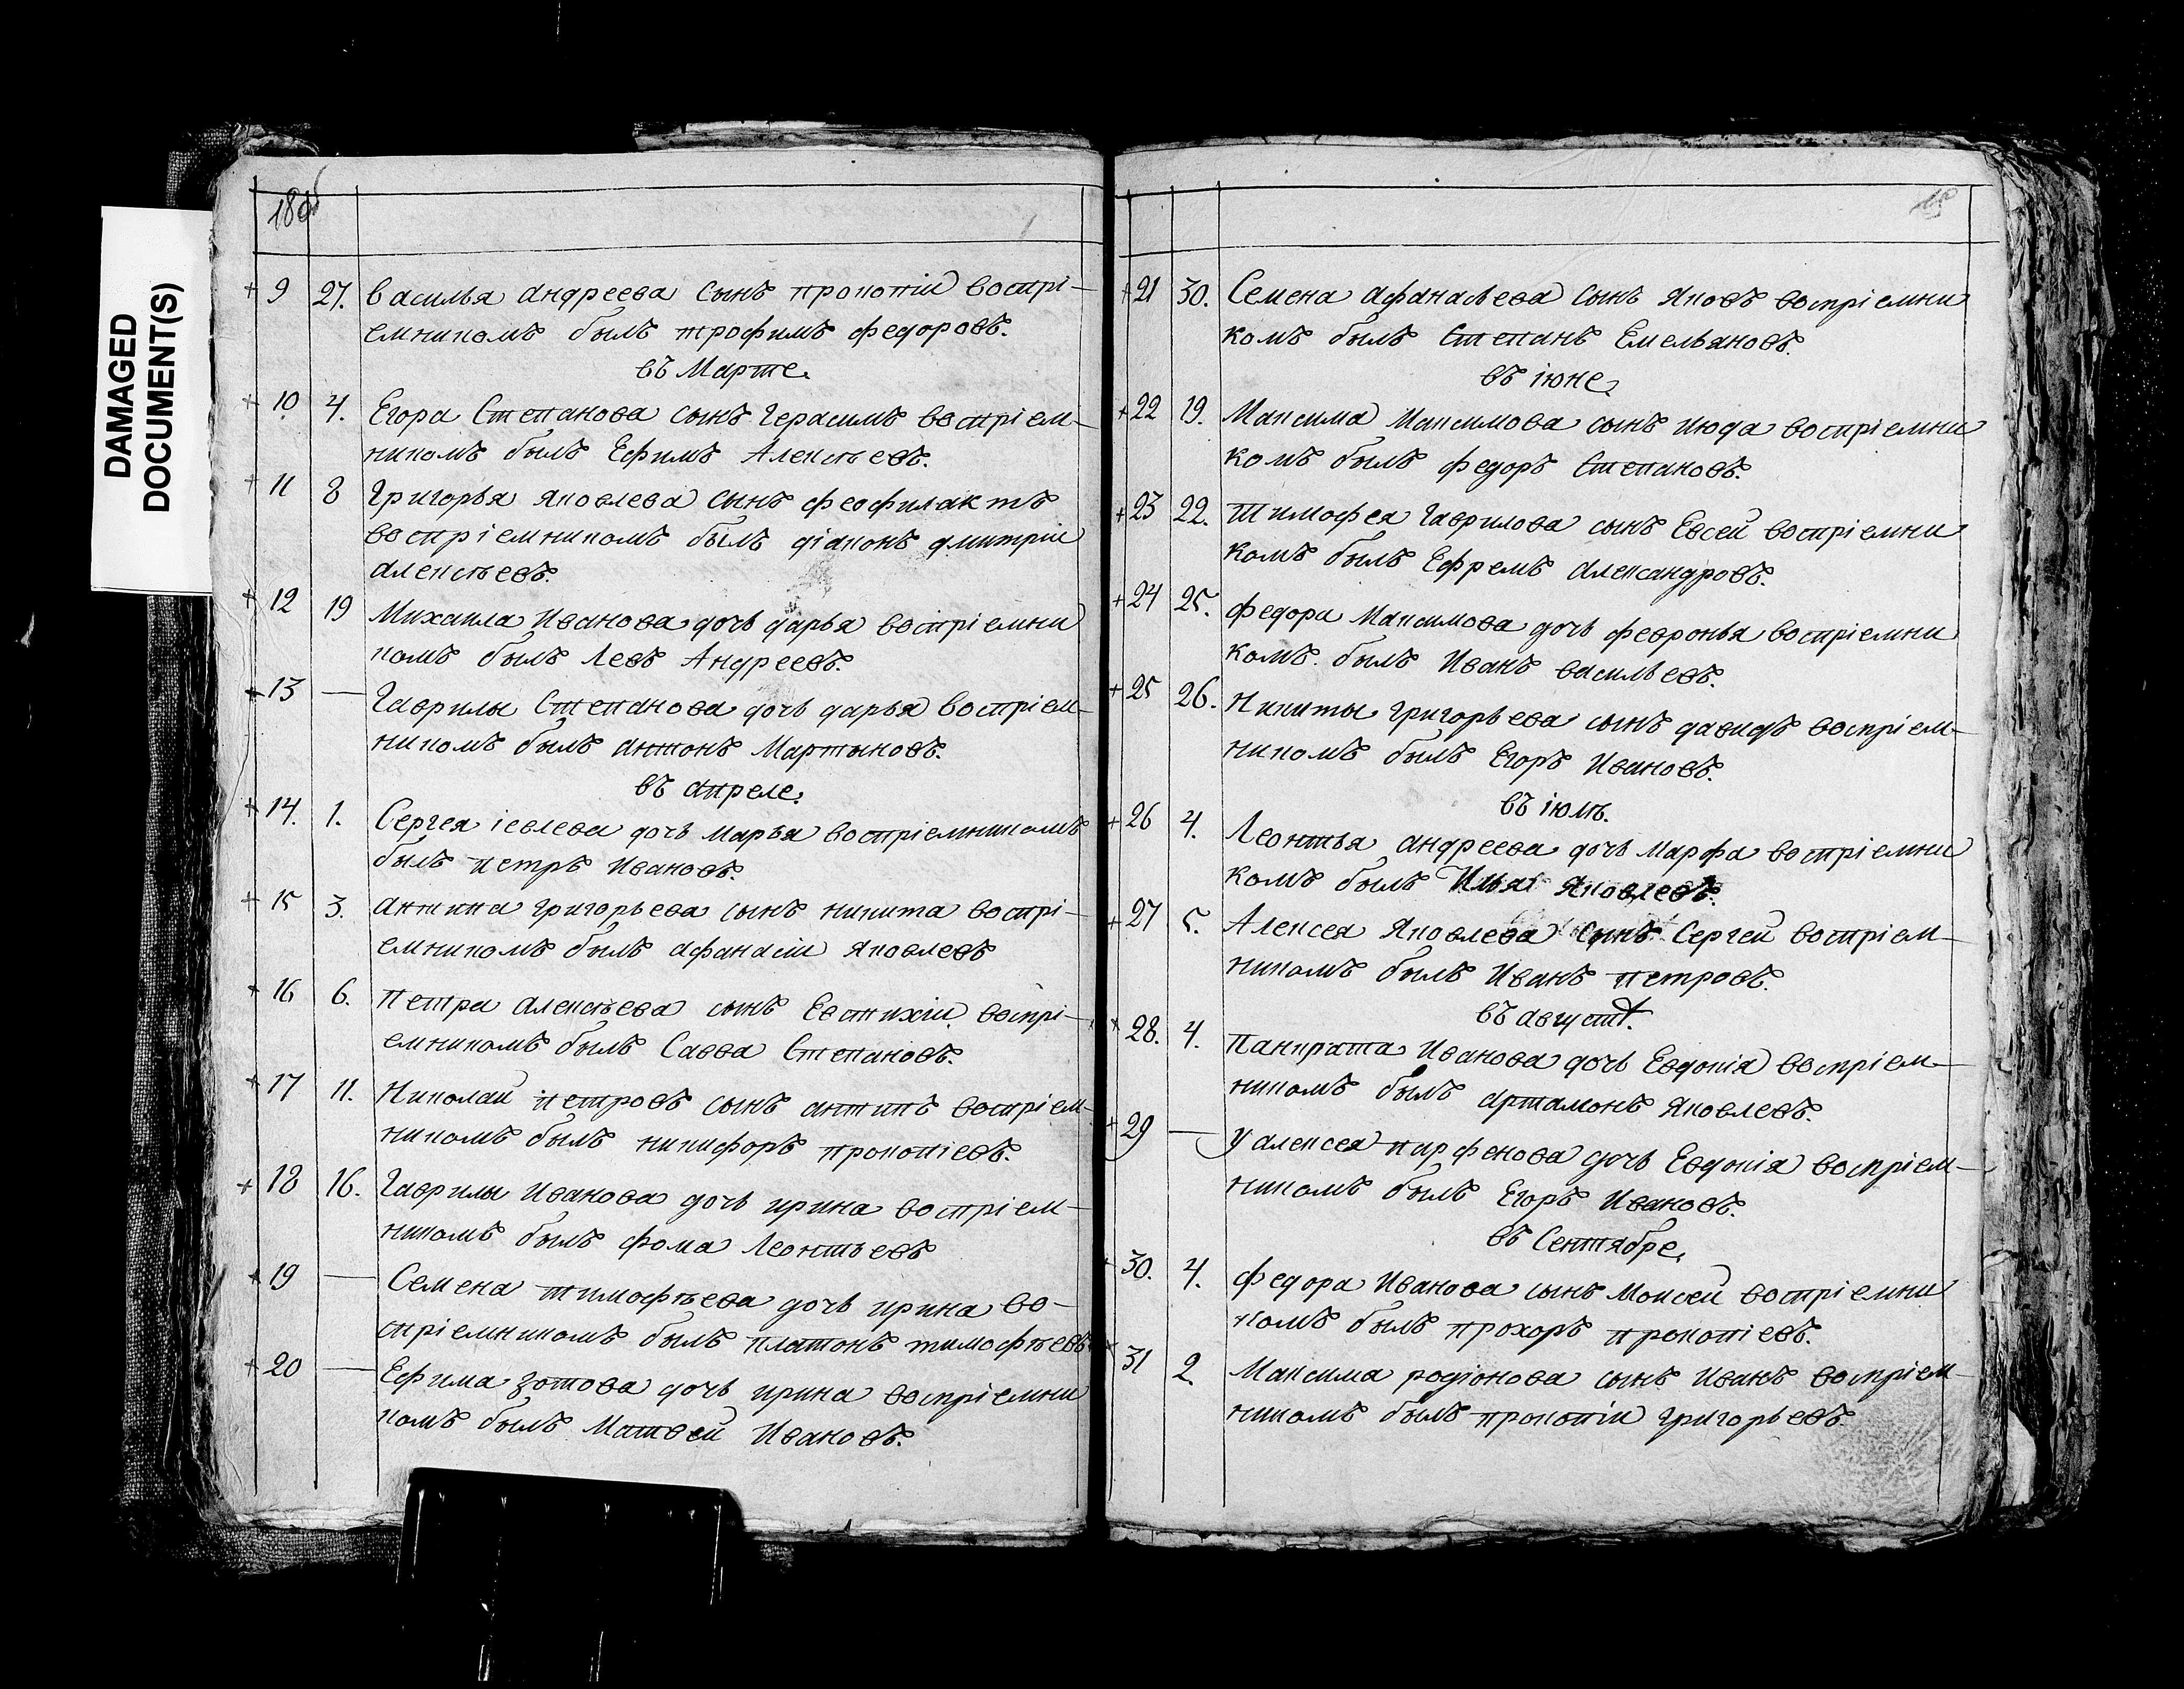 DAMAGED
DOCUMENT(S)
180
+ 9 27. Василья андреева сынъ прокопiй воспрi-
емникомъ былъ трофимъ федоровъ.
въ Марте.
+ 10 4. Егора Степанова сынъ Герасимъ воспрiем-
никомъ былъ Ефимъ Алексѣевъ.
+ 11 8 Григорья яковлева сынъ феофилактъ
воспрiемникомъ былъ дiаконъ дмитрiй
алексѣевъ.
+ 12 19 Михаила Иванова дочь дарья воспрiемни
комъ былъ Левъ Андреевъ.
+ 13 — Гаврилы Степанова дочь дарья воспрiем-
никомъ былъ антонъ Мартыновъ.
въ апреле.
+ 14. 1. Сергея iевлева дочь марья воспрiемникомъ
былъ петръ Ивановъ.
+ 15 3. антипа григорьева сынъ никита воспрi-
емникомъ былъ афанасiй яковлевъ
+ 16 6. петра алексѣева сынъ Евстихiй воспрi-
емникомъ былъ Савва Степановъ.
+ 17 11. Николай петровъ сынъ антипъ воспрiем-
никомъ былъ никифоръ прокопiевъ.
+ 18 16. Гаврилы Иванова дочь ирина воспрiем-
никомъ былъ фома Леонтьевъ
+ 19 — Семена тимофѣева дочь ирина во-
спрiемникомъ былъ платонъ тимофѣевъ
+ 20 — Ефима зотова дочь ирина воспрiемни
комъ былъ Матвей Ивановъ.
+ 21 30. Семена афанасьева сынъ яковъ воспрiемни
комъ былъ Степанъ Емельяновъ.
въ iюне
+ 22 19. Максима Максимова сынъ Июда воспрiемни
комъ былъ федоръ Степановъ.
+ 23 22. тимофея гаврилова сынъ Евсей воспрiемни
комъ былъ Ефремъ александровъ.
+ 24 25. федора Максимова дочь февронья воспрiемни
комъ былъ Иванъ васильевъ.
+ 25 26. Никиты григорьева сынъ давидъ воспрiем-
никомъ былъ Егоръ Ивановъ.
въ iюлѣ.
+ 26 4. Леонтья андреева дочь марфа воспрiемни
комъ былъ Илья яковлевъ.
+ 27 5. Алексея яковлева сынъ Сергей воспрiем-
никомъ былъ Иванъ петровъ.
въ августѣ.
+ 28. 4. панкрата Иванова дочь Евдокiя воспрiем-
никомъ былъ артамонъ яковлевъ.
+ 29 — У алексея парфенова дочь Евдокiя воспрiем-
никомъ былъ Егоръ Ивановъ.
въ Сентябре.
+ 30. 4. федора Иванова сынъ Моисей воспрiемни
комъ былъ прохоръ прокопiевъ.
+ 31 2. Максима родiонова сынъ Иванъ воспрiем-
никомъ былъ прокопiй григорьевъ